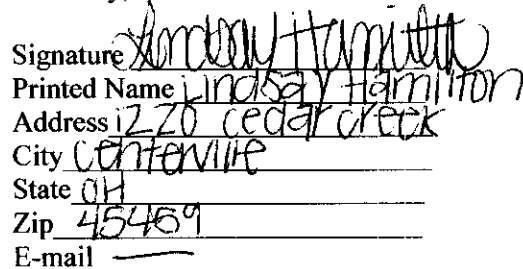 Signature Lindsay Hamilton
Printed Name Lindsay Hamilton
Address 1220 cedar creek
City Centerville
State OH
Zip 45459
E-mail —